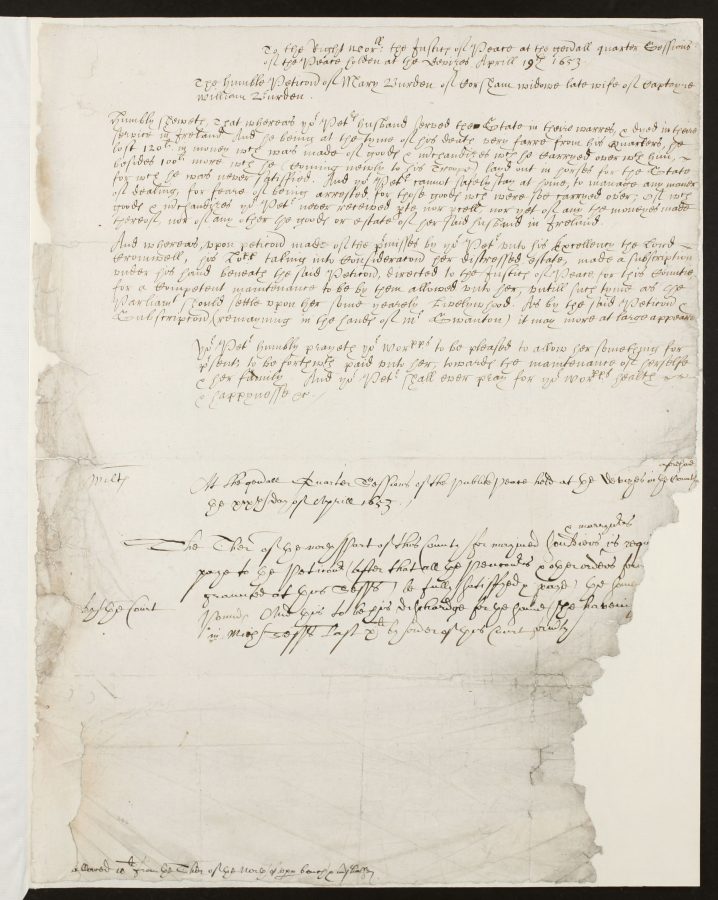 To the Right Worll: the Justices of Peace at the generall quarter Sessions
of the Peace holden at the Devizes Aprill 19th 1653.
The humble Peticion of Mary Burden of Corsham widowe late wife of Captayne
William Burden.
Humbly Sheweth, That whereas yor Petrs husband served the State in theire warres, & dyed in theire
service in Ireland And he being at the tyme of his death very farre from his Quarters, he
lost 120li in money wch was made of goods & merchandizes wch he carryed over wth him, &
besides 100li more wch he (coming newly to his Troope) laid out in horses for the State
for wch he was never satisfied. And yor Petr cannot safely stay at home, to manage any maner
of dealing, for feare of being arrested for those goods wch were soe carryed over; Of wch
goods & merchandizes yor Petr never received yte nor pcell, nor yet of any the moneyes made
thereof, nor of any other the goods or estate of her said husband in Ireland.
And whereas, upon peticion made of the pmisses by yor Petr unto his Excellency the Lord
Cromwell, his Lopp taking into Consideracion her distressed estate, made a subscription
under his hand beneath the said Peticion, directed to the Justices of Peace for this Countie,
for a Competent maintenance to be by them allowed unto her, untill such tyme as the
Parliamt should settle upon her some yearely Livelywhood. As by the said Peticion &
Subscripcion (remayning in the hands of mr Swanton) it may more at large appeare
Yor Petr humbly prayeth yor Worpps to be pleased to allow her something for
psent: to be forthwth paid unto her, towards the maintenance of herselfe
& her family And yor Petr shall ever pray for yor Worpps health
& happynesse &c.
Wiltes
At the generall Quarter Sessions of the publike peace held at the Devizes in the County aforesaid
the xixth day of Aprill 1653.
& marryners
The Trer of the North part of this County for maymed Souldiers is
paye to the Peticoner (after that all the Pencons & other orders
graunted at this Sessions be fully satisfyed & payd) the some
Pounds And this to be his discharge for the same
in Mich Sessions last by order of this Court
by the Court
allowed from the Trer of the North